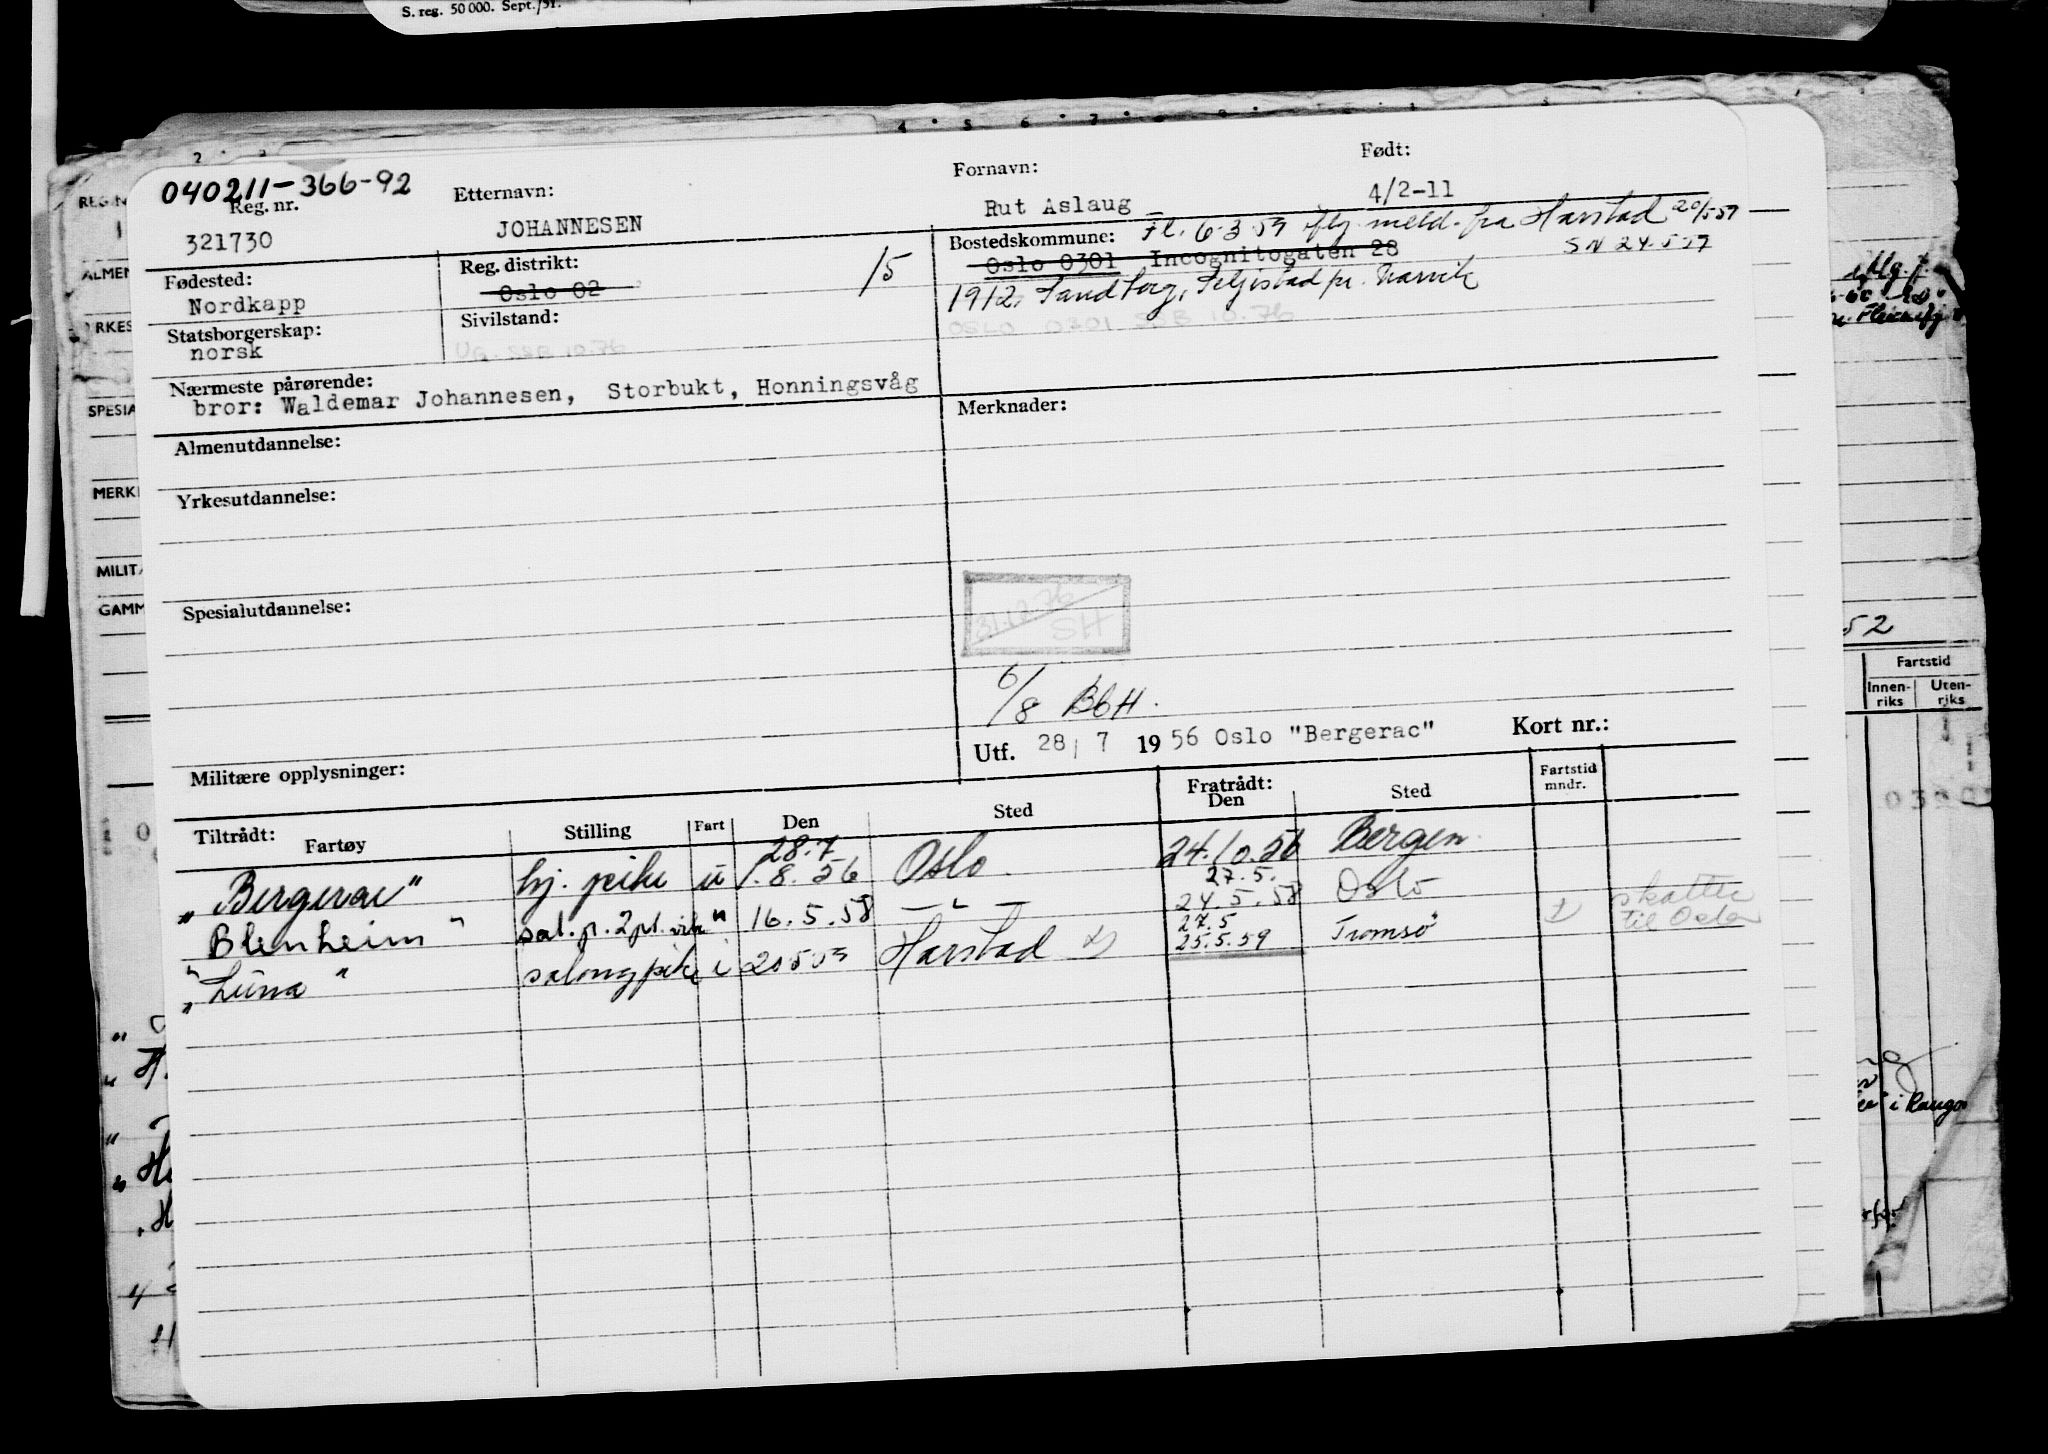 S. reg. 50 000. Sept./51.
040211-366-92
Reg. nr.
Etternavn:
Fornavn:
Født:
321730
JOHANNESEN
Rut Aslaug
4/2-11
Fødested:
Nordkapp
Reg. distrikt:
Oslo 02
15
Bostedskommune: Fl. 6.3.59 iflg. meld. fra Harstad 20/5 59
Oslo 0301 Incognitogaten 28
1912, Sandtorg, pr. Narvik
Statsborgerskap:
norsk
Sivilstand:
Ug. SSB 10.76
OSLO 0301 SSB 10.76
Nærmeste pårørende:
bror: Waldemar Johannesen, Storbukt, Honningsvåg
Merknader:
Almenutdannelse:
Yrkesutdannelse:
Spesialutdannelse:
31.12.76
SH
6/8 BbH.
Utf. 28/ 7 1956 Oslo "Bergerac"
Kort nr.:
Militære opplysninger:
Tiltrådt:
Fartøy
Stilling
Fart
Den
Sted
Fratrådt:
Den
Sted
Fartstid
mndr.
28.7
"Bergerac" hj. pike u 1.8.56 Oslo 24.10.56 Bergen
27.5.
Blenheim" sal. p. " 16.5.58 — " — 24.5.58 Oslo
27.5
"Luna" salongpike i 20 5 59 Harstad x) 25.5.59 Tromsø
skatter
til Oslo
REG.N
ALMEN
YRKES
SPESIA
MERK
MILIT
GAMM
52
Fartstid
Innen-
riks
Uten-
riks
i Rangoo